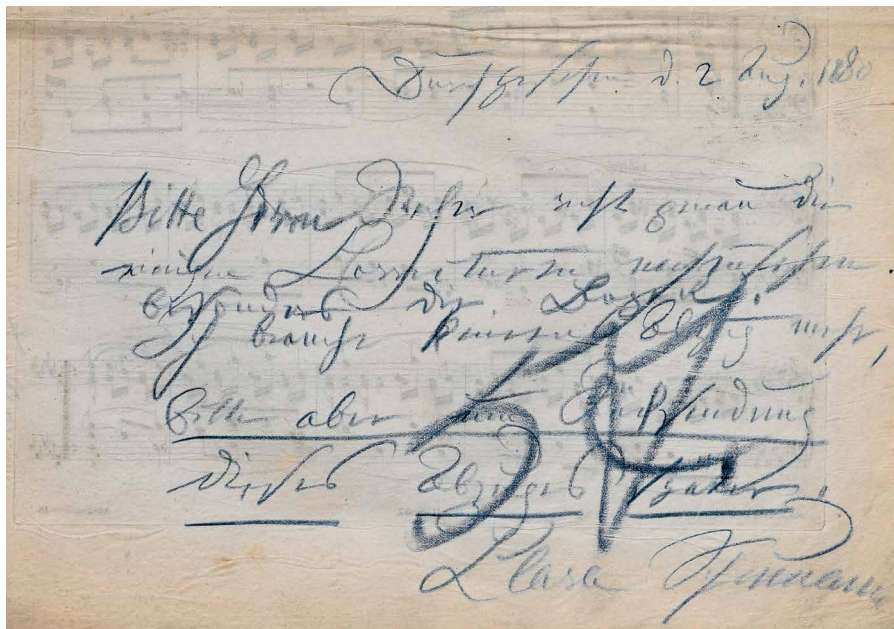 Durchgesehen d. 2 Aug. 1880
Bitte Herrn recht genau die
meine Correcturen nachzusehen.
besonders die Bogen.
Ich brauche keinen Abzug mehr,
bitte aber um Rücksendung
dieses Abzuges später.
Clara Schumann